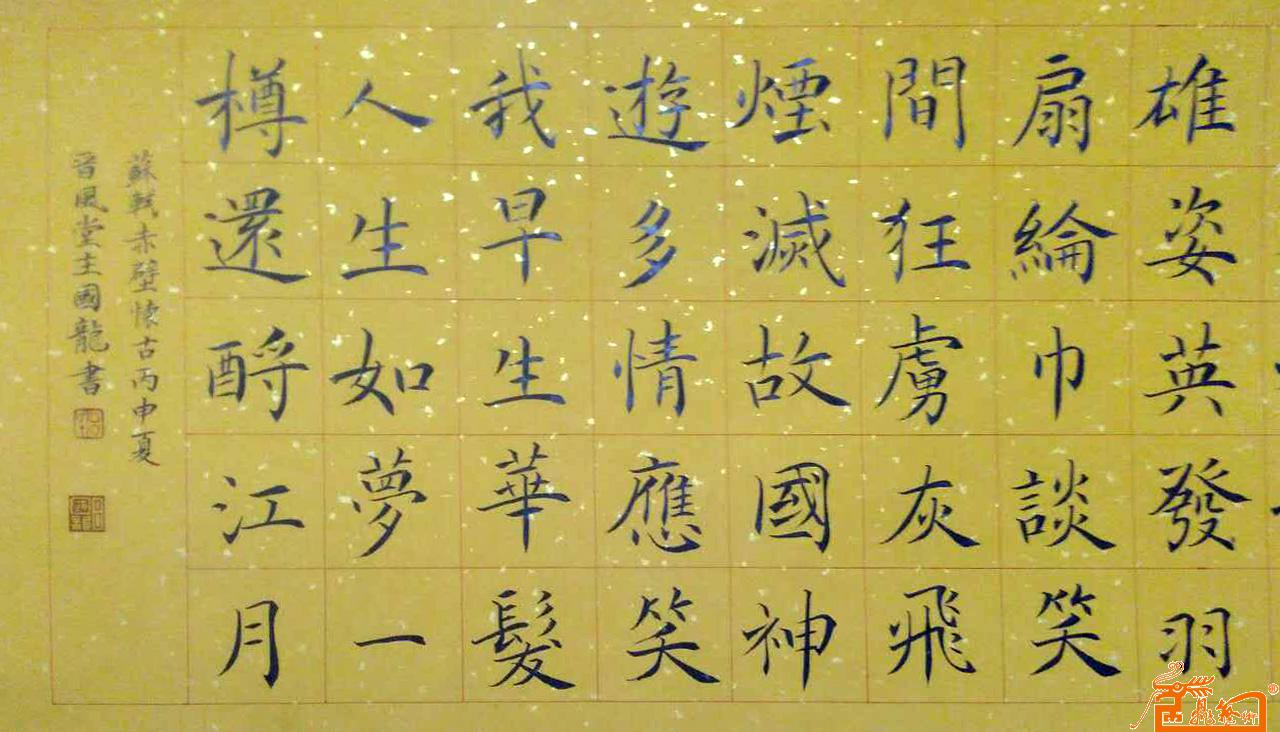 雄姿英發羽
扇綸巾談笑
間狂虜灰飛
煙滅故國神
遊多情應笑
我早生華髮
人生如夢一
樽還酹江月
蘇軾赤壁懷古丙申夏
晉風堂主國龍書